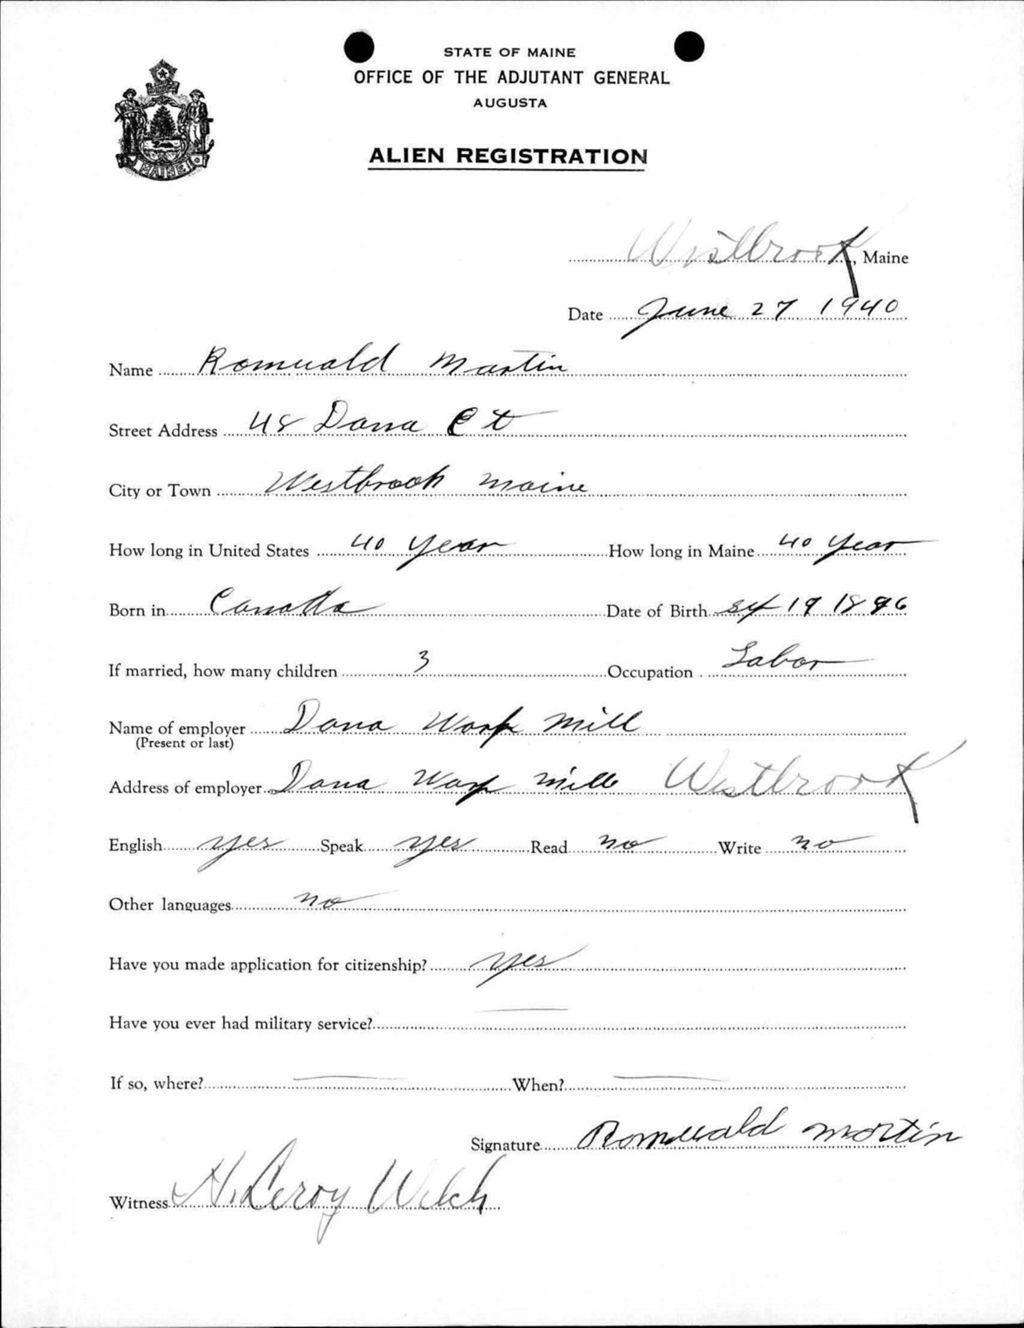 STATE OF MAINE
OFFICE OF THE ADJUTANT GENERAL
AUGUSTA
ALIEN REGISTRATION
MAINE
Westbrook, Maine
Date June 27 1940
Name Romuald Martin
Street Address 48 Dana Ct
City or Town Westbrook Maine
How long in United States 40 year How long in Maine 40 year
Born in Canada Date of Birth 19
If married, how many children 3 Occupation Labor
Name of employer Dana Warp Mill
(Present or last)
Address of employer Dana Warp Mill Westbrook
English yes Speak yes Read no Write no
Other languages no
Have you made application for citizenship? yes
Have you ever had military service? —
If so, where? — When? —
Signature Romuald Martin
Witness H. Leroy Welch